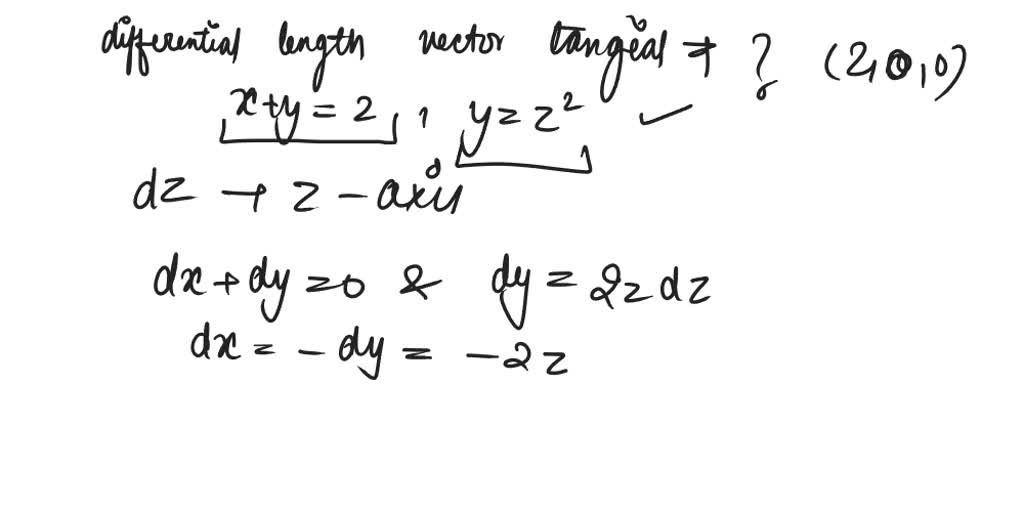 differential length vector tangeial → ? (2,0,0)
x+y = 2 , y = z² ✓
dz → z - axis
dx + dy = 0 & dy = 2z dz
dx = - dy = -2z